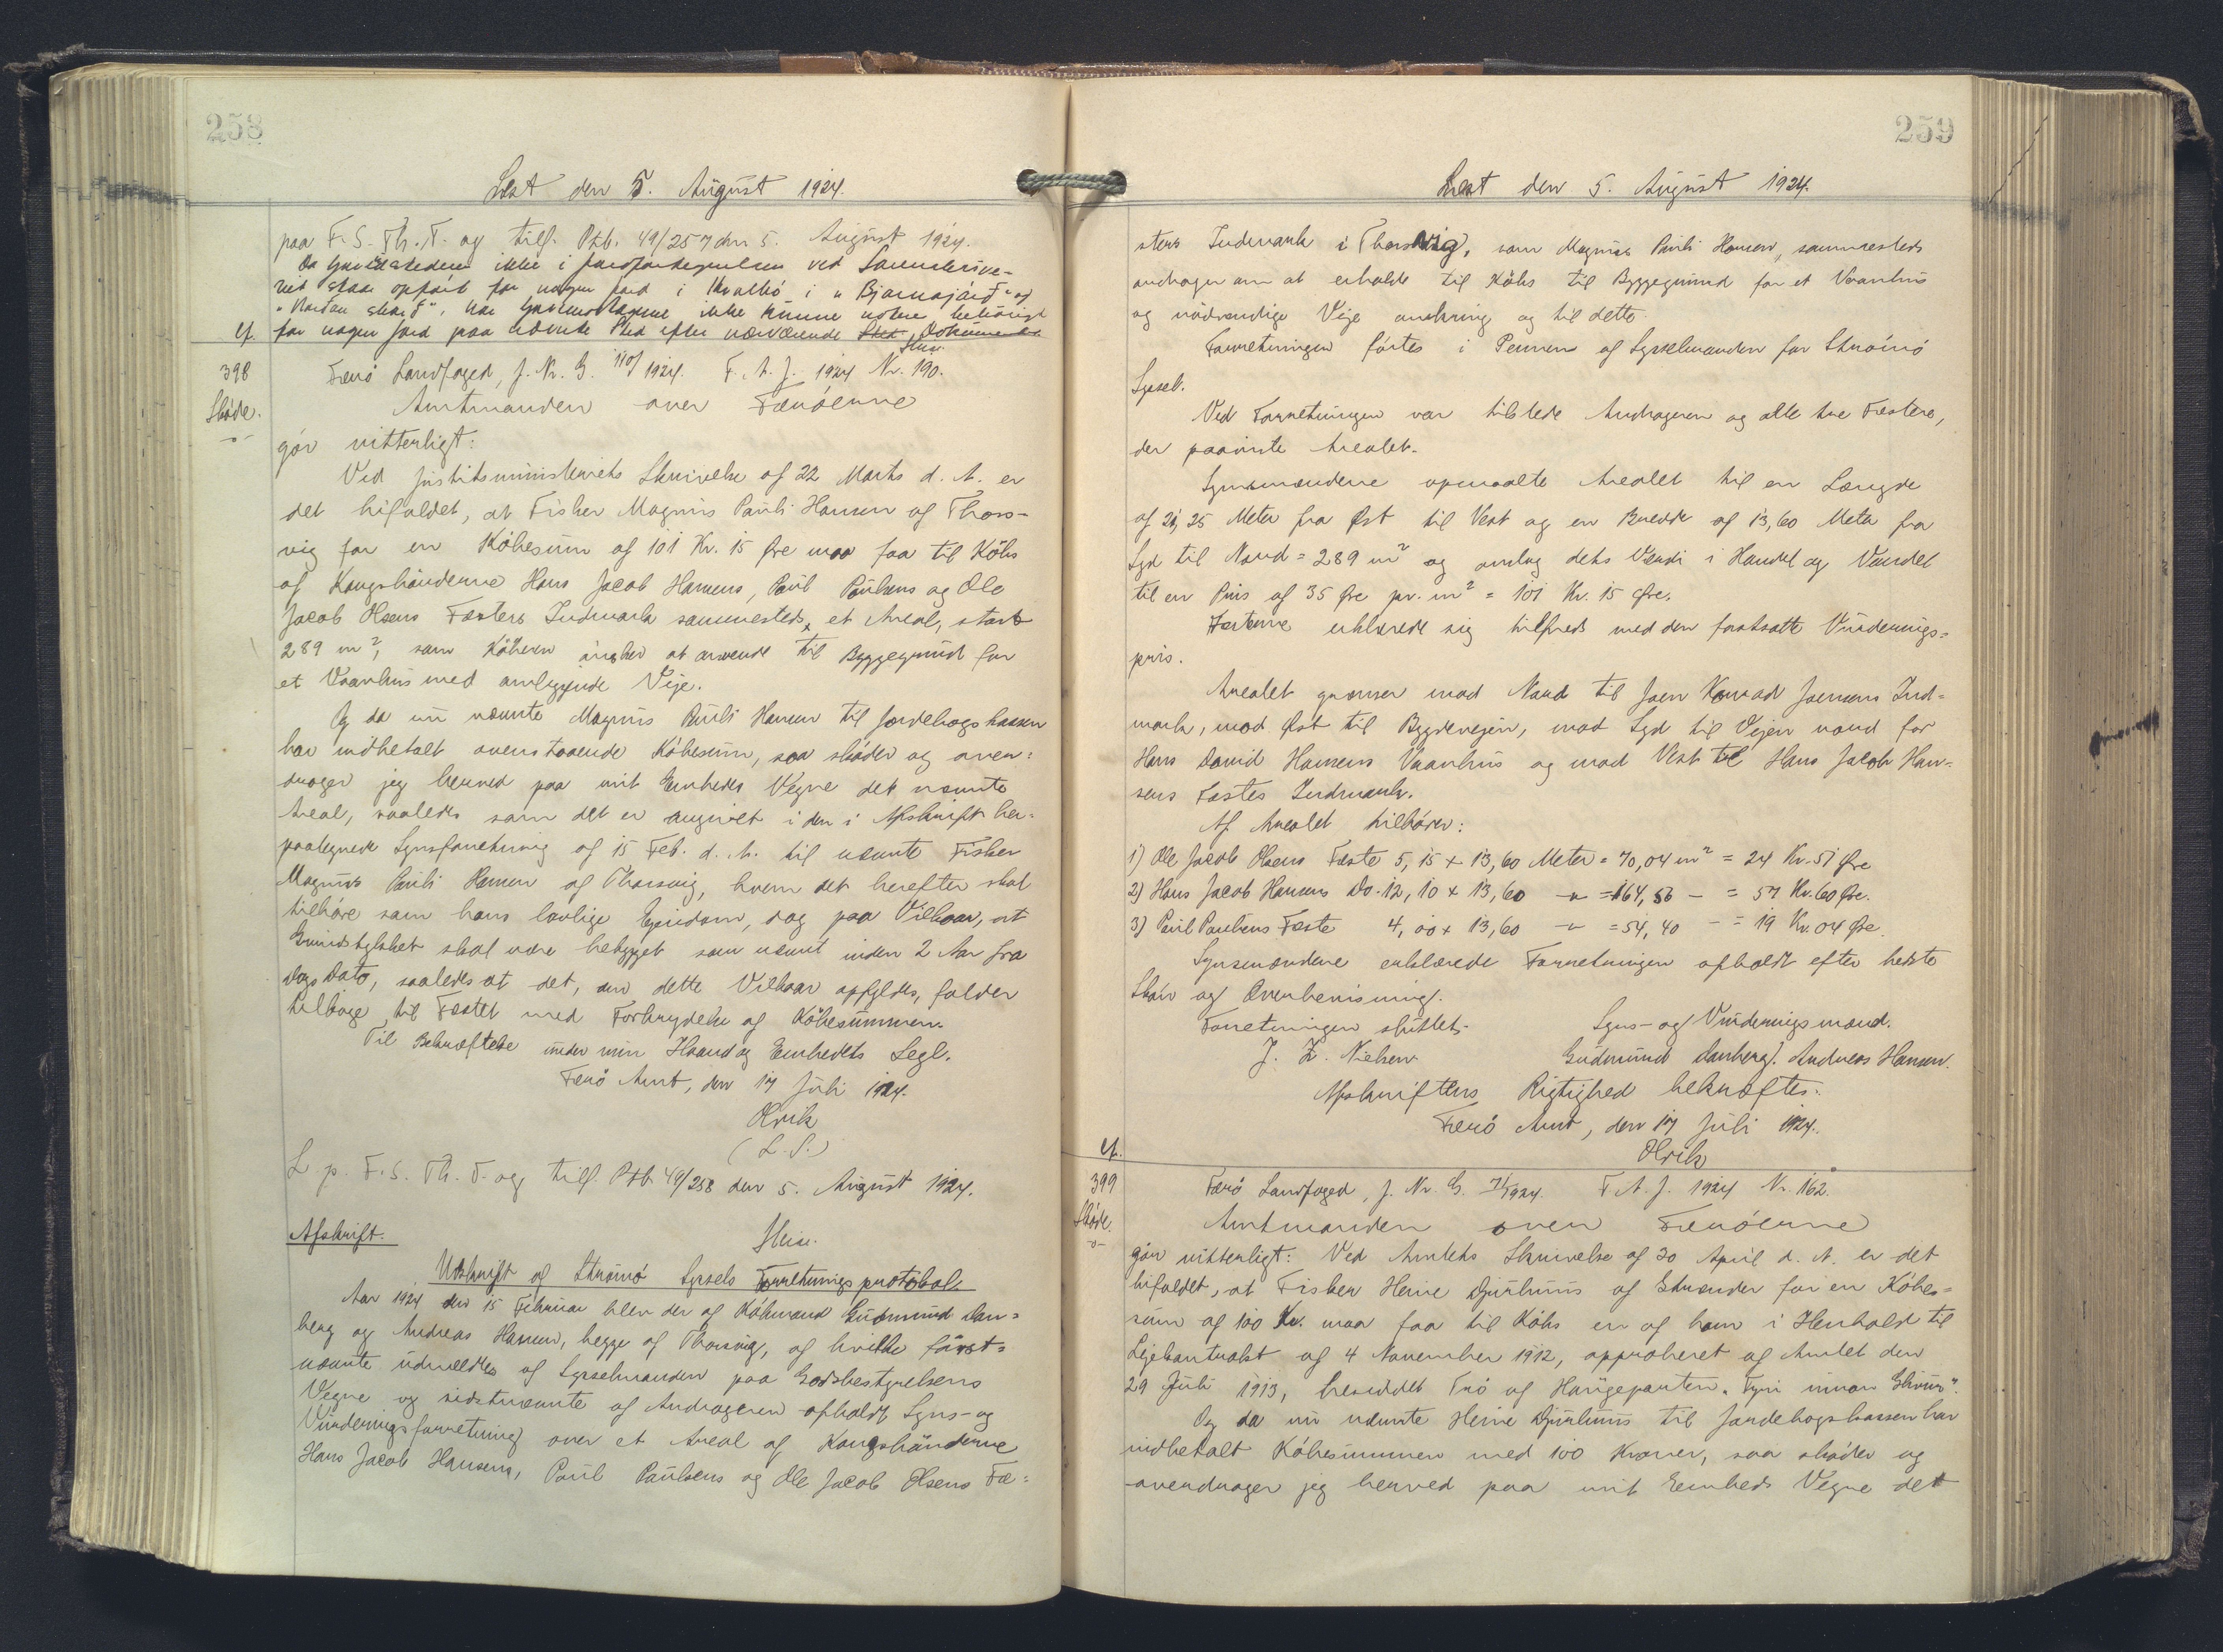 258
Læst den 5. August 1924.
paa F. S. Th. T. og tilf. Ptb. 49/257 den 5. August 1924.
Da Hovedstederne ikke i Jordfortegnelsen ved Sorenskrive-
riet staar opført for nogen Jord i Kvalbö i "Bjarnajørd" og
"Nordan skard", har ikke kunne noteres behörigt
for nogen Jord paa nævnte Sted efter nærværende Sted, Dokument.
cf.
Heise.
398
Færö Landfoged, J. Nr. G. 110/1924. F. A. J. 1924 Nr. 190.
Sköde.
Amtmanden over Færöerne
gör vitterligt:
Ved Justitsministeriets Skrivelse af 22 Marts d. A. er
det bifaldet, at Fisker Magnus Pauli Hansen af Thors-
vig for en Köbesum af 101 Kr. 15 Øre maa faa til Köbs
af Kongsbönderne Hans Jacob Hansens, Poul Poulsens og Ole
Jacob Olsens Fæsters Indmark sammesteds et Areal, stort
289 m², som Köberen önsker at anvende til Byggegrund for
et Vaanhus med omliggende Veje.
Og da nu nævnte Magnus Pauli Hansen til Jordebogskassen
har indbetalt ovenstaaende Köbesum, saa sköder og over-
drager jeg herved paa mit Embeds Vegne det nævnte
Areal, saaledes som det er angivet i den i Afskrift her-
paategnede Synsforretning af 15 Feb. d. A. til nævnte Fisker
Magnus Pauli Hansen af Thorsvig, hvem det herefter skal
tilhöre som hans lovlige Ejendom, dog paa Vilkaar, at
Grundstykket skal være bebygget som nævnt inden 2 Aar fra
Dags Dato, saaledes at det, om dette Vilkaar opfyldes, falder
tilbage til Fæstet med Forbrydelse af Köbesummen.
Til Bekræftelse under min Haand og Embedets Segl.
Færö Amt, den 17 Juli 1924.
Olrik
(L. S.)
L. p. F. S. Th. T. og tilf. Ptb. 49/258 den 5. August 1924.
Heise.
Afskrift.
Udskrift af Strömö Sysels Forretningsprotokol.
Aar 1924 den 15 Februar blev der af Köbmand Gudmund Dan-
berg og Andreas Hansen, begge af Thorsvig, af hvilke först-
nævnte udmeldtes af Sysselmanden paa Godsbestyrelsens
Vegne og sidstnævnte af Andrageren afholdt Syns- og
Vurderingsforretning over et Areal af Kongsbönderne
Hans Jacob Hansens, Poul Poulsens og Ole Jacob Olsens Fæ-
259
Læst den 5. August 1924.
sters Indmark i Thorsvig, som Magnus Pauli Hansen, sammesteds
andrager om at erholde til Köbs til Byggegrund for et Vaanhus
og nödvendige Veje omkring og til dette.
Forretningen förtes i Pennen af Sysselmanden for Strömö
Syssel.
Ved Forretningen var tilstede Andrageren og alle tre Fæstere,
der paaviste Arealet.
Synsmændene opmaalte Arealet til en Længde
af 21,25 Meter fra Øst til Vest og en Bredde af 13,60 Meter fra
Syd til Nord = 289 m² og ansatte dets Værdi i Handel og Vandel
til en Pris af 35 Øre pr. m² = 101 Kr. 15 Øre.
Fæsterne erklærede sig tilfreds med den fastsatte Vurderings-
pris.
Arealet grænser mod Nord til Joen Konrad Joensens Ind-
mark, mod Øst til Bygdevejen, mod Syd til Vejen nord for
Hans David Hansens Vaanhus og mod Vest til Hans Jacob Han-
sens Fæstes Indmark.
Af Arealet tilhörer:
1) Ole Jacob Olsens Fæste 5,15 × 13,60 Meter = 70,04 m² = 24 Kr. 51 Øre
2) Hans Jacob Hansens Do. 12,10 × 13,60 -"- = 164,56 - = 57 Kr. 60 Øre.
3) Poul Poulsens Fæste 4,00 × 13,60 -"- = 54,40 - = 19 Kr. 04 Øre.
Synsmændene erklærede Forretningen afholdt efter bedste
Skön og Overbevisning.
Forretningen sluttet. Syns- og Vurderingsmænd.
J. Z. Nielsen Gudmund Danberg. Andreas Hansen.
Afskriftens Rigtighed bekræftes.
Færö Amt, den 17 Juli 1924.
Olrik
cf.
399
Færö Landfoged, J. Nr. G. 71/1924. F. A. J. 1924 Nr. 162.
Sköde.
Amtmanden over Færöerne
gör vitterligt: Ved Amtets Skrivelse af 30 April d. A. er det
bifaldet, at Fisker Heine Djurhuus af Strænder for en Köbe-
sum af 100 Kr. maa faa til Köbs en af ham i Henhold til
Lejekontrakt af 4 November 1912, approberet af Amtet den
29 Juli 1913, besiddet Trö af Haugeparten "Fyri innan Skous".
Og da nu nævnte Heine Djurhuus til Jordebogskassen har
indbetalt Köbesummen med 100 Kroner, saa sköder og
overdrager jeg herved paa mit Embeds Vegne det